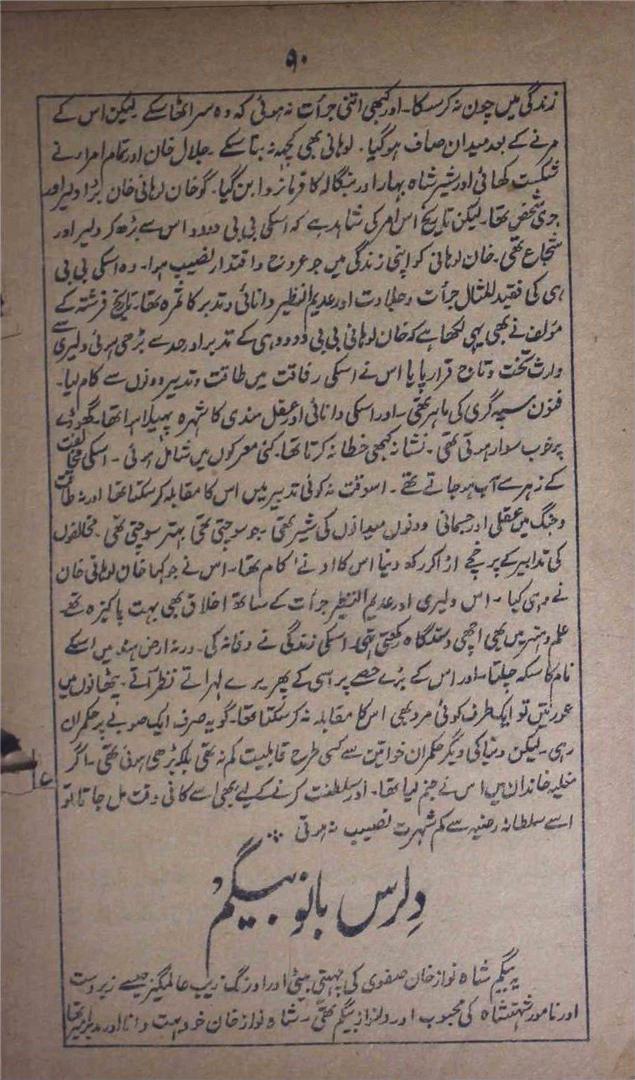 ۹۰
زندگی میں چون نہ کر سکا۔ اور کبھی اتنی جرأت نہ ہوئی کہ وہ سر اٹھا سکے لیکن اس کے
مرنے کے بعد میدان صاف ہو گیا۔ لوہانی بھی کچھ نہ بنا سکے۔ جلال خان اور تمام امراء نے
شکست کھائی اور شیر شاہ بہار اور بنگالہ کا فرمانروا بن گیا۔ گو خان لوہانی خان بڑا دلیر اور
جری شخص تھا۔ لیکن تاریخ اس امر کی شاہد ہے کہ اسکی بی بی دودو اس سے بڑھ کر دلیر اور
شجاع تھی۔ خان لوہانی کو اپنی زندگی میں جو عروج و اقتدار نصیب ہوا۔ وہ اسکی بی بی
ہی کی فقید المثال جرأت و جلادت اور عدیم النظیر دانائی و تدبر کا ثمرہ تھا۔ تاریخ فرشتہ کے
مؤلف نے بھی یہی لکھا ہے کہ خان لوہانی بی بی دودو ہی کے تدبر اور حد سے بڑھی ہوئی دلیری سے
وارث تخت و تاج قرار پایا اس نے اسکی رفاقت میں طاقت و تدبیر دونوں سے کام لیا۔
فنون سپہ گری کی ماہر تھی۔ اور اسکی دانائی اور عقل مندی کا شہرہ پھیلا ہوا تھا۔ گھوڑے
پر خوب سوار ہوتی تھی۔ نشانہ کبھی خطا نہ کرتا تھا۔ کئی معرکوں میں شامل ہوئی۔ اسکی مخالفت
کے زہرے آب ہو جاتے تھے۔ اسوقت نہ کوئی تدبیر میں اس کا مقابلہ کر سکتا تھا اور نہ طاقت
و جنگ میں عقلی اور جسمانی دونوں میدانوں کی شیر تھی۔ جو سوچتی تھی بہتر سوچتی تھی۔ مخالفوں
کی تدابیر کے پرخچے اڑا کر رکھ دینا اس کا ادنےٰ کام تھا۔ اس نے جو کہا خان لوہانی خان
نے وہی کیا۔ اس دلیری اور عدیم النظیر جرأت کے ساتھ اخلاق بھی بہت پاکیزہ تھے۔
علم و ہنر میں بھی اچھی دستگاہ رکھتی تھی۔ اسکی زندگی نے وفا نہ کی۔ ورنہ ارض ہند میں اسکے
نام کا سکہ چلتا۔ اور اس کے بڑے حصے پر اسی کے پھریرے لہراتے نظر آتے۔ پٹھانوں میں
عورتیں تو ایک طرف کوئی مرد بھی اس کا مقابلہ نہ کر سکتا تھا۔ گو یہ صرف ایک صوبے پر حکمران
رہی۔ لیکن دنیا کی دیگر حکمران خواتین سے کسی طرح قابلیت کم نہ تھی بلکہ بڑھی ہوئی تھی۔ اگر
مغلیہ خاندان میں اس نے جنم لیا تھا۔ اور سلطنت کرنے کے لیے بھی اسے کافی وقت مل جاتا تو
اسے سلطانہ رضیہ سے کم شہرت نصیب نہ ہوتی
دلرس بانو بیگم
یہ بیگم شاہ نواز خان صفوی کی چہیتی بیٹی اور اورنگ زیب عالمگیر جیسے زبردست
اور نامور شہنشاہ کی محبوب اور دلنواز بیگم تھی۔ شاہ نواز خان خود بہت دانا اور مدبر امیر تھا